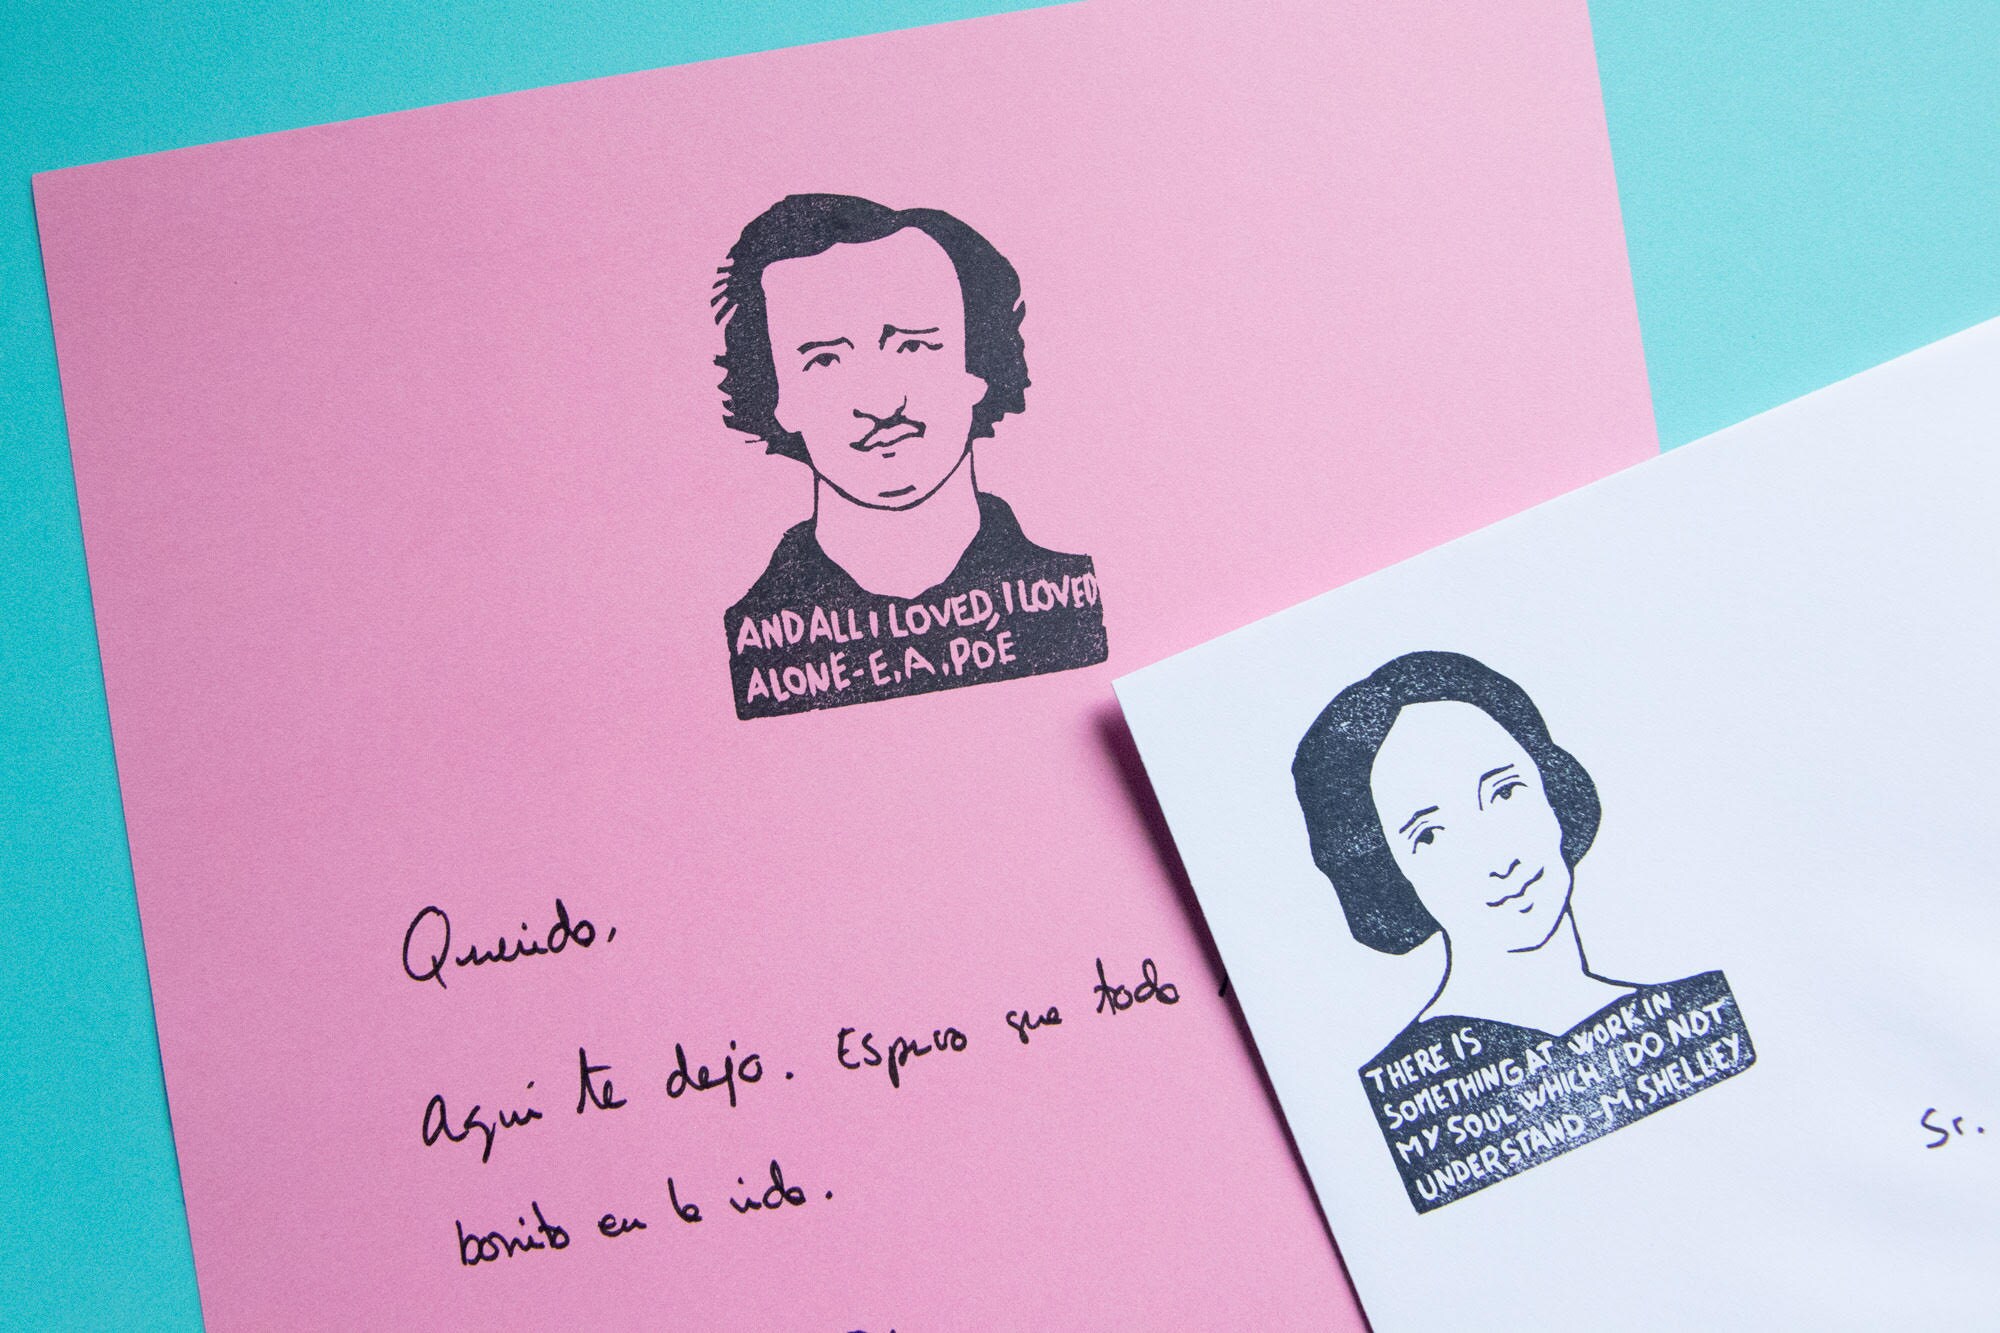 AND ALL I LOVED, I LOVED
ALONE - E.A. POE
Querido,
Aqui te dejo. Espero que todo
bonito en la vida.
THERE IS
SOMETHING AT WORK IN
MY SOUL WHICH I DO NOT
UNDERSTAND - M. SHELLEY
Sr.